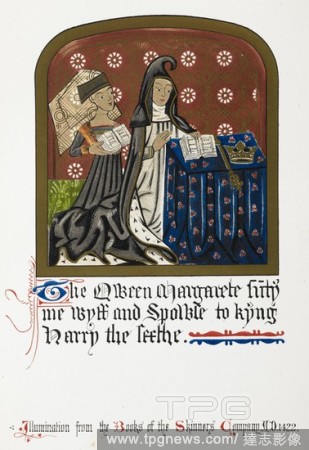 The Qween Margarete sūty
me wyff and Spowse to kyng
Harry the sexthe.
Illumination from the Books of the Skinners' Company A.D. 1422
TPG
www.tpgnews.com/達志影像